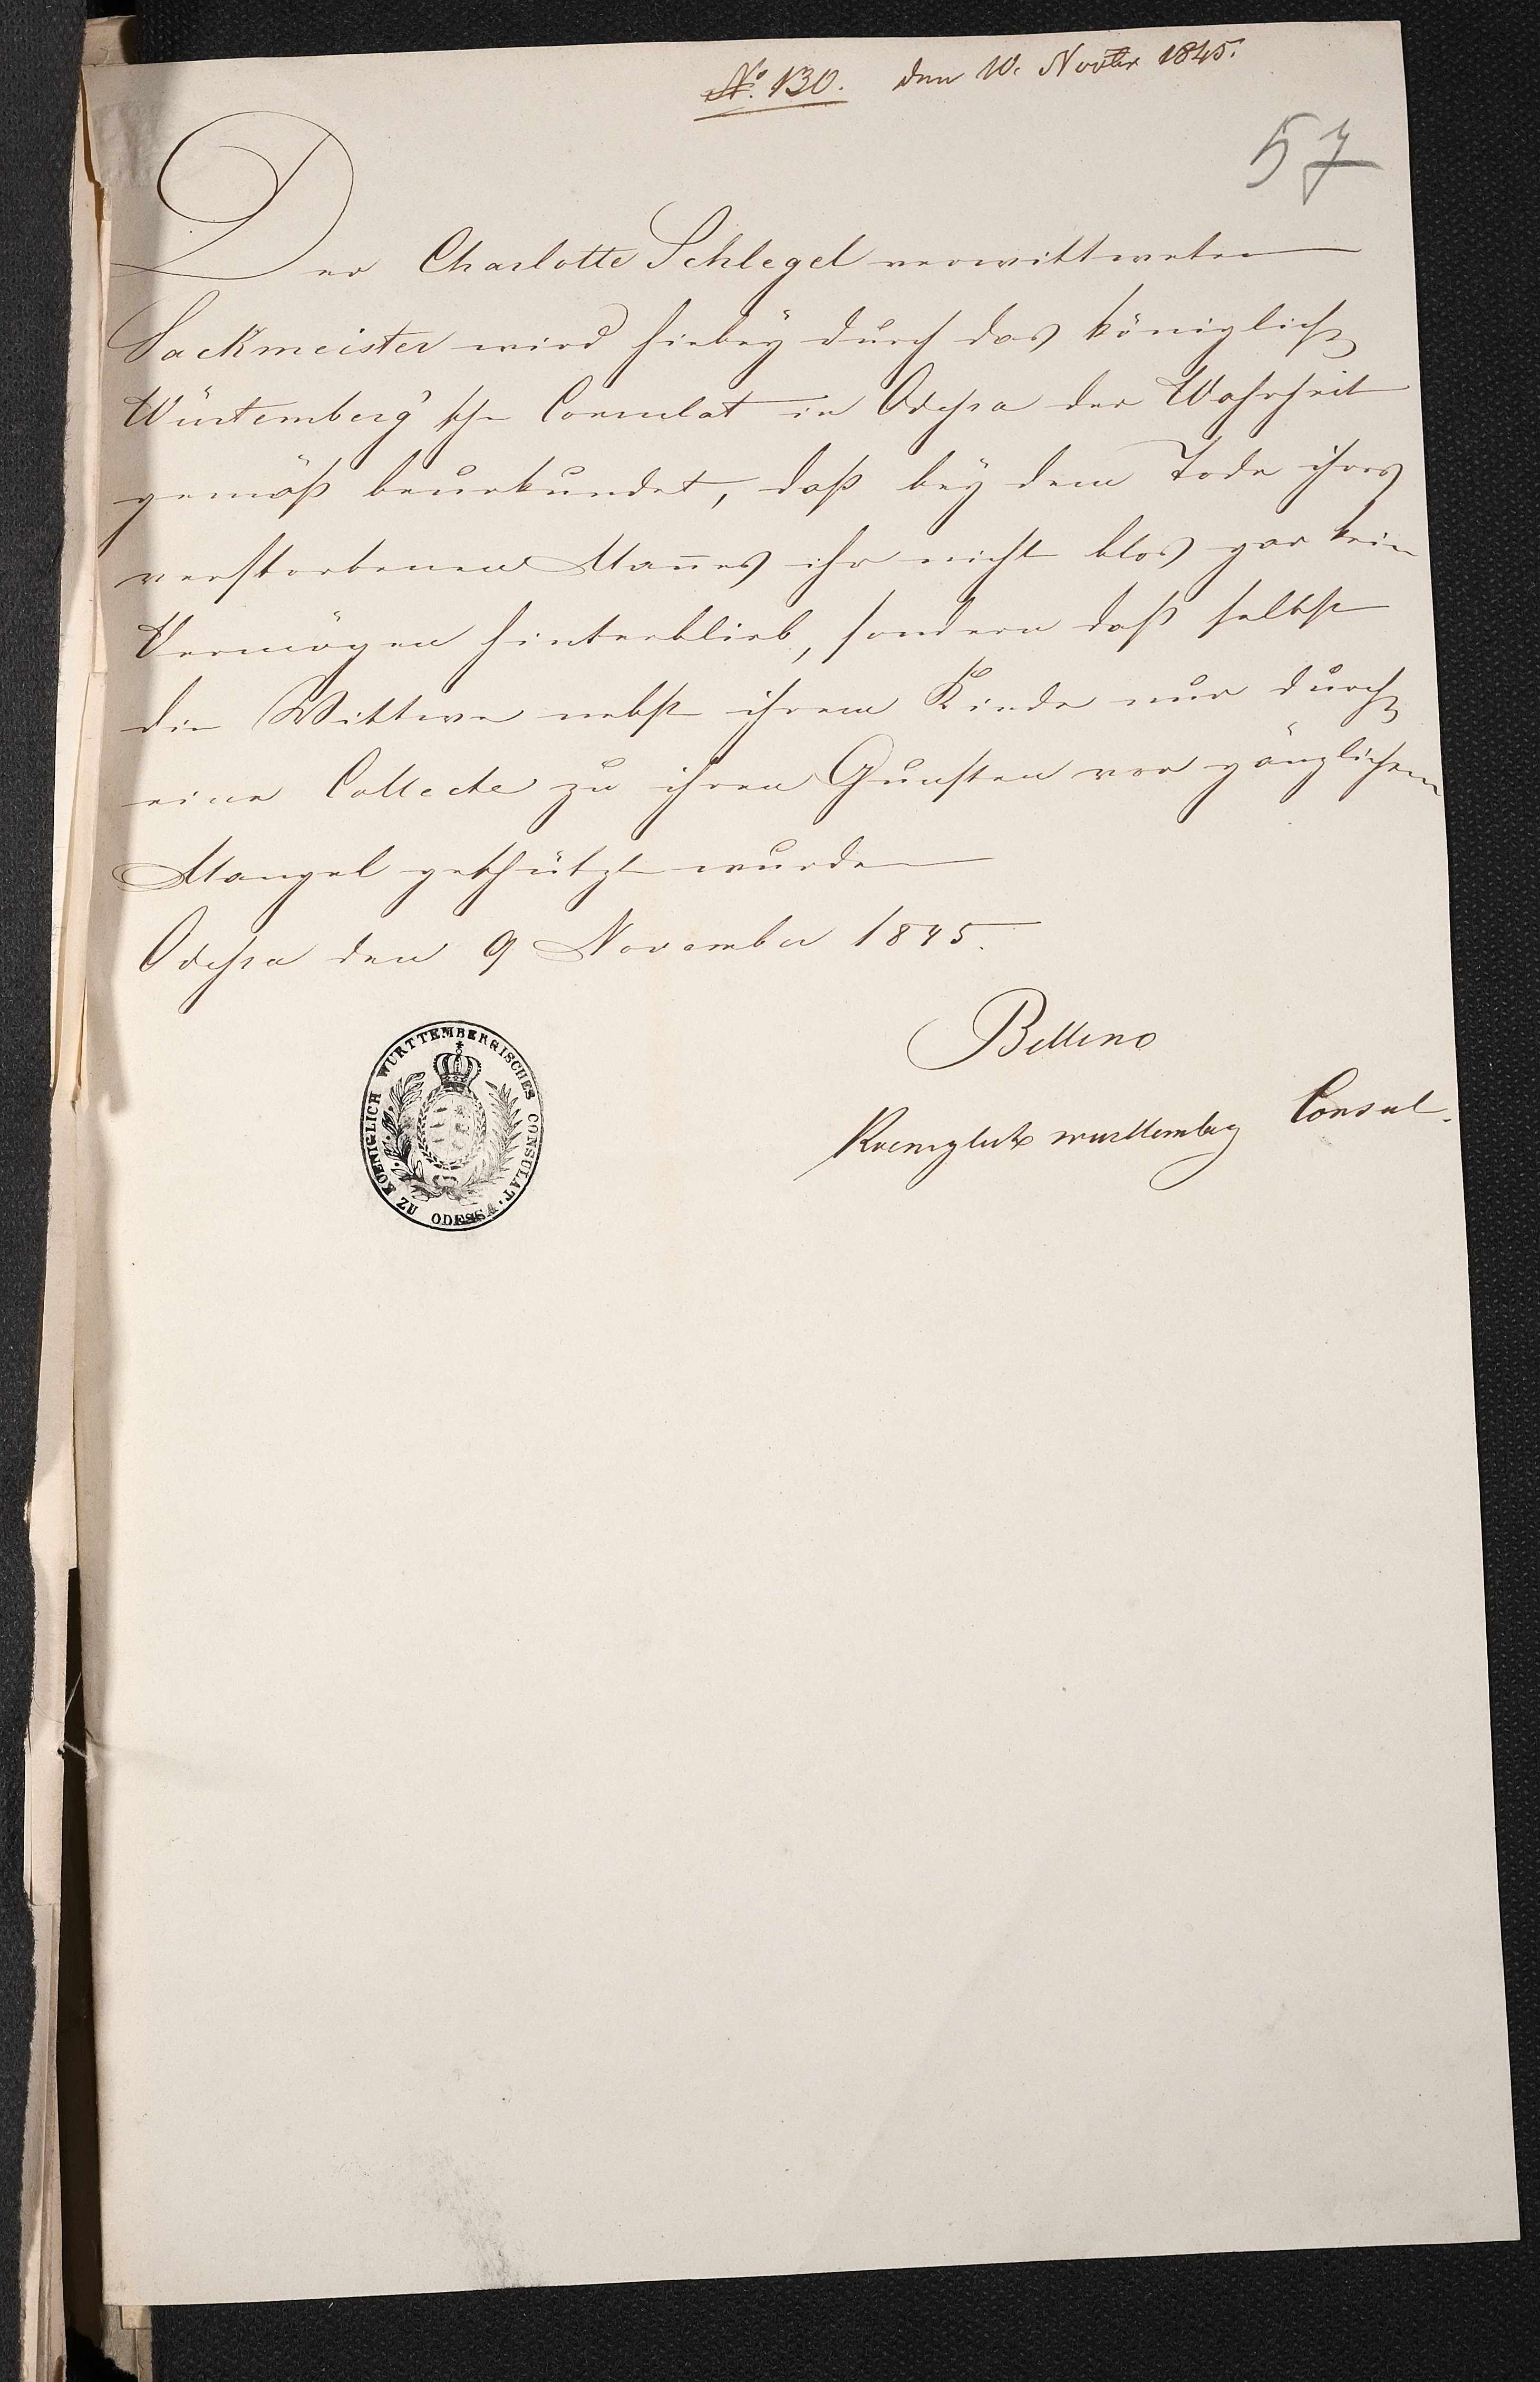 No. 130. den 10. Novbr 1845.
57
Der Charlotte Schlegel verwittweten
Sackmeister wird hiebeÿ durch das königlich
Würtemberg'sche Consulat in Odessa der Wahrheit
gemäß beurkundet, daß beÿ dem Tode ihres
verstorbenen Mannes ihr nicht blos gar kein
Vermögen hinterblieb, sondern daß selbst
die Wittwe nebst ihrem Kinde nur durch
eine Collecte zu ihren Gunsten vor gänzlichem
Mangel geschützt wurde
Odessa den 9 November 1845.
Bellino
Koeniglich württemberg Consul.
KOENIGLICH WURTTEMBERGISCHES CONSULAT. ZU ODESSA.